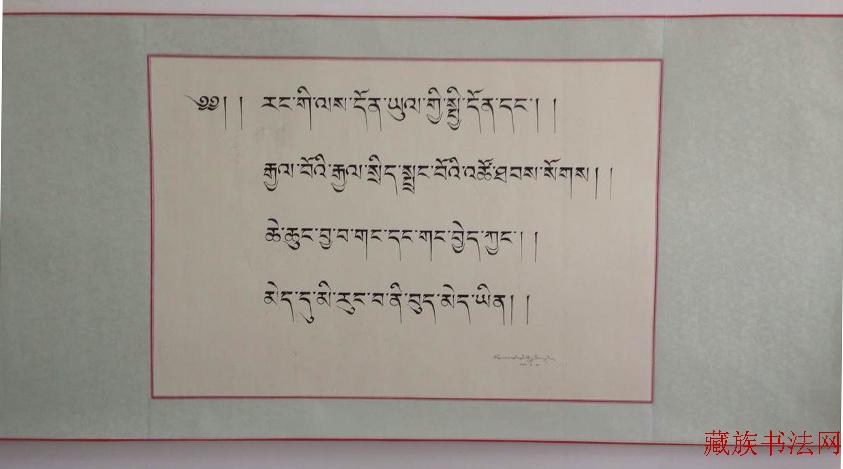 ༄༅། ། རང་གི་ལས་དོན་ཡུལ་གྱི་སྤྱི་དོན་དང་། །
རྒྱལ་བོའི་རྒྱལ་སྲིད་སྤྲང་བོའི་འཚོ་ཐབས་སོགས། །
ཆེ་ཆུང་བྱ་བ་གང་དང་གང་བྱེད་ཀྱང་། །
མེད་དུ་མི་རུང་བ་ནི་བུད་མེད་ཡིན། །
藏族书法网